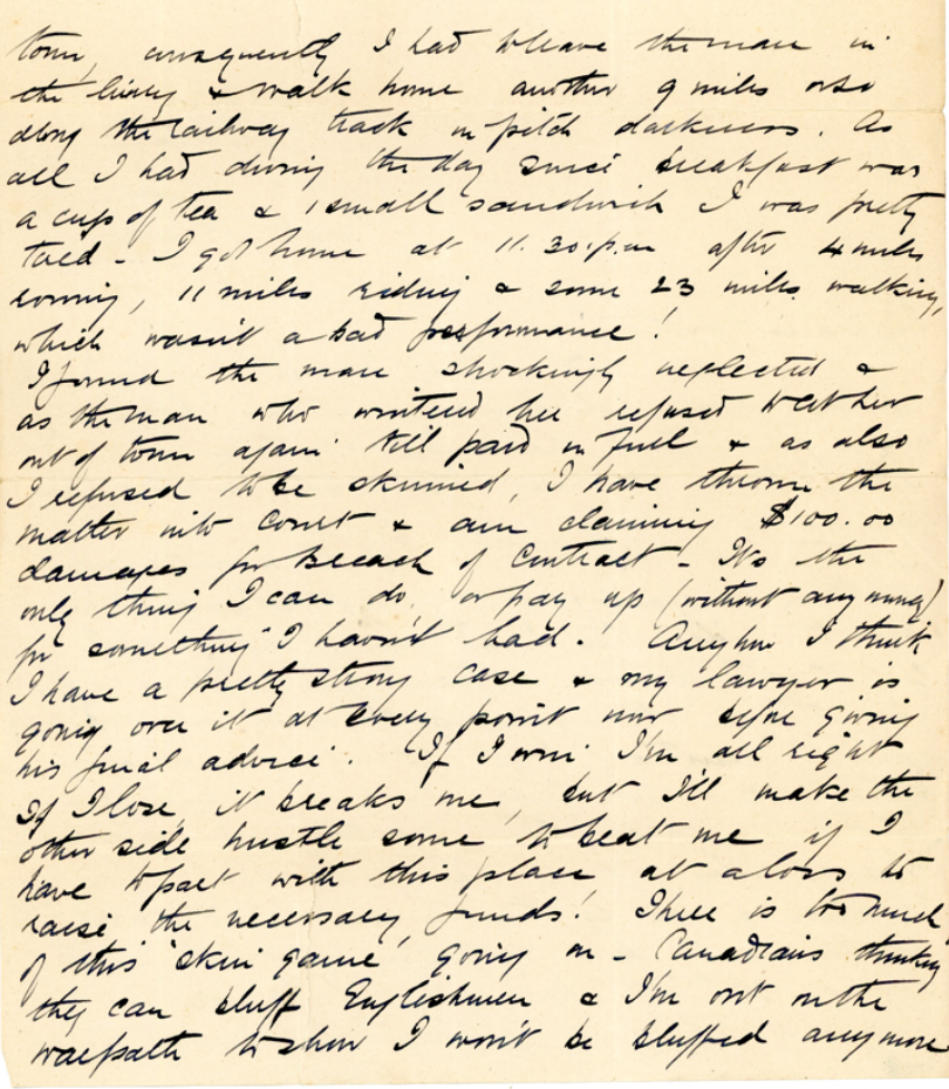 town, consequently I had to leave the mare in
the livery & walk home another 9 miles or so
along the railway track in pitch darkness. As
all I had during the day since breakfast was
a cup of tea & 1 small sandwich I was pretty
tired - I got home at 11.30.p.m after 4 miles
rowing, 11 miles riding & some 23 miles walking,
which wasn't a bad performance!
I found the mare shockingly neglected &
as the man who wintered her refused to let her
out of town again till paid in full & as also
I refused to be skinned, I have thrown the
matter into Court & am claiming $100.00
damages for breach of Contract - It's the
only thing I can do, or pay up (without any money)
for "something" I havn't had. Anyhow I think
I have a pretty strong case & my lawyer is
going over it at every point now before giving
his final advice. If I win I'm all right
If I lose, it breaks me, but I'll make the
other side hustle some to beat me if I
have to part with this place at a loss to
raise the necessary funds! There is too much
of this 'skin game' going on - Canadians thinking
they can bluff Englishmen & I'm out on the
warpath to show I won't be bluffed anymore